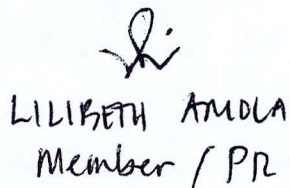 LILIBETH AMOLA
Member / PR